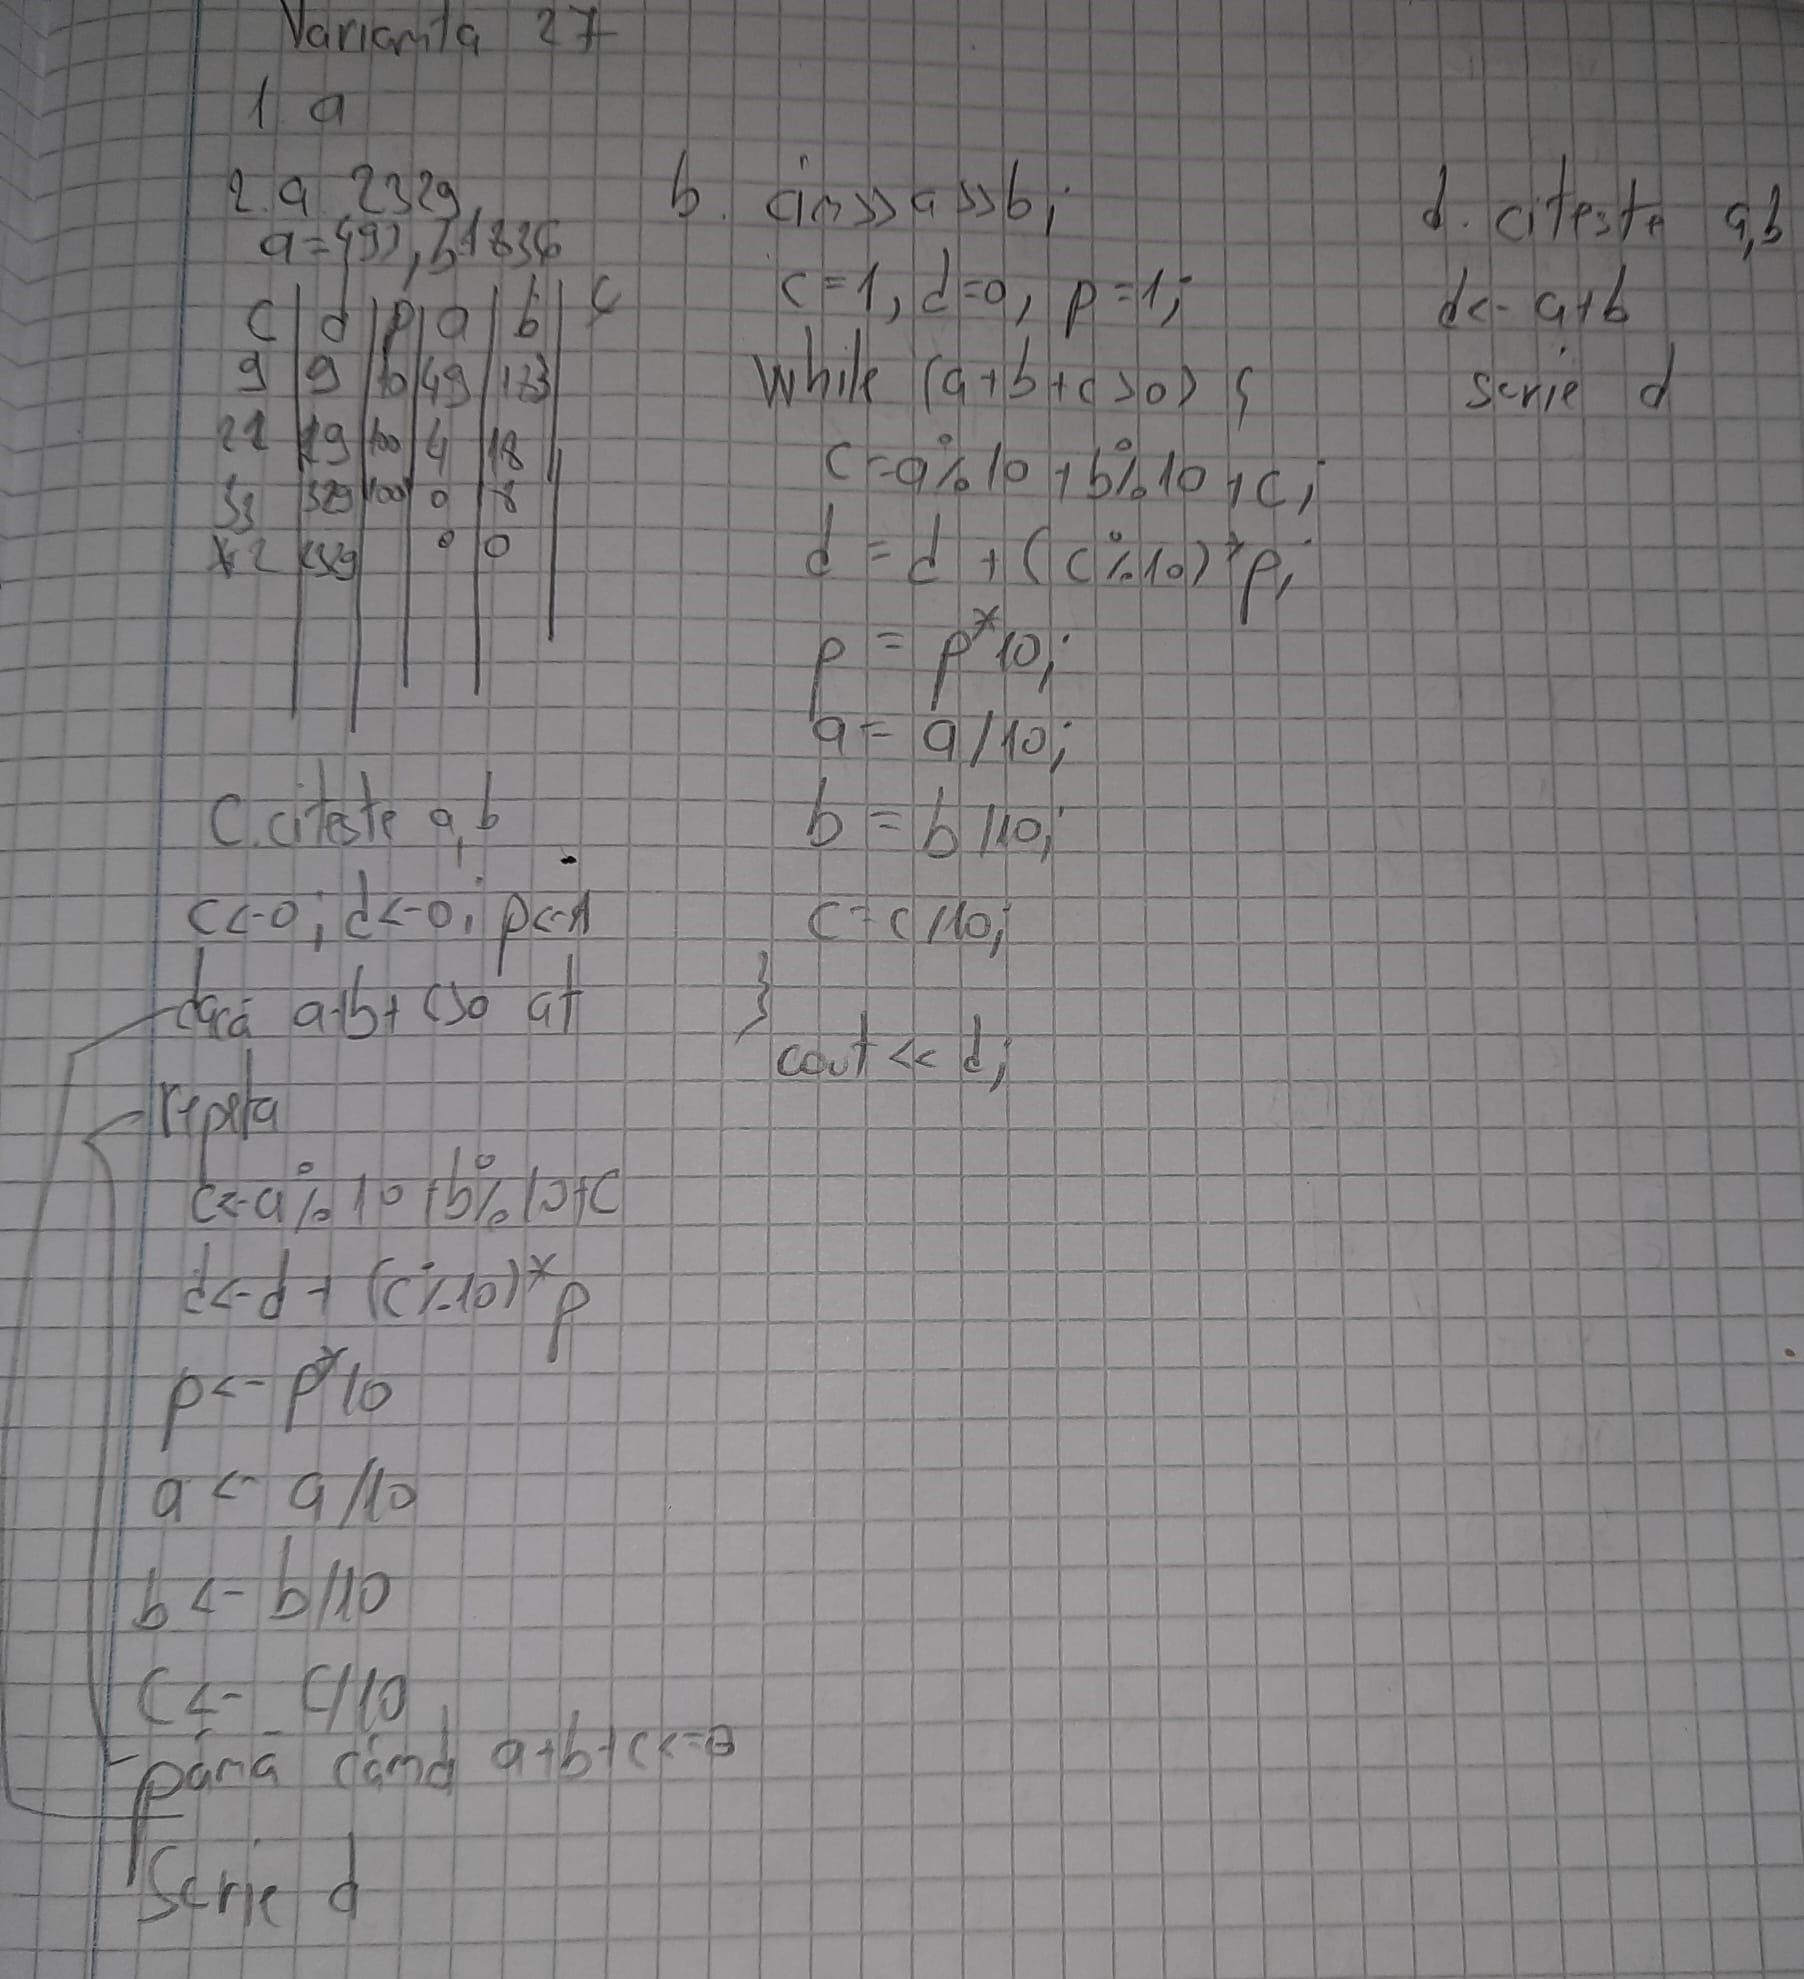 Varianta 27
1. a
2. a. 2329
a=493, b1836
c | d | p | a | b
9 | 9 | 10 | 49 | 183
| 29 | 100 | 4 | 18
| 329 | 100 | 0 |
2 | 2329 | | 0 | 0
c. citeste a,b
c<-0; d<-0; p<-1
dacă a+b+c>0 at
repeta
c<-a%10+b%10+c
d<-d+(c%10)*p
p<-p*10
a<-a/10
b<-b/10
c<-c/10
până când a+b+c<=0
Scrie d
b. cin>>a>>b;
c=1, d=0, p=1;
while (a+b+c>0) {
c=a%10+b%10+c;
d=d+((c%10)*p;
p=p*10;
a=a/10;
b=b/10;
c=c/10;
}
cout<<d;
d. citeste a,b
d<-a+b
scrie d